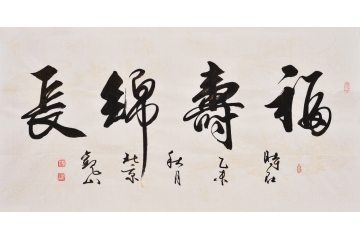 福壽綿長
時在
乙未
秋月
北京